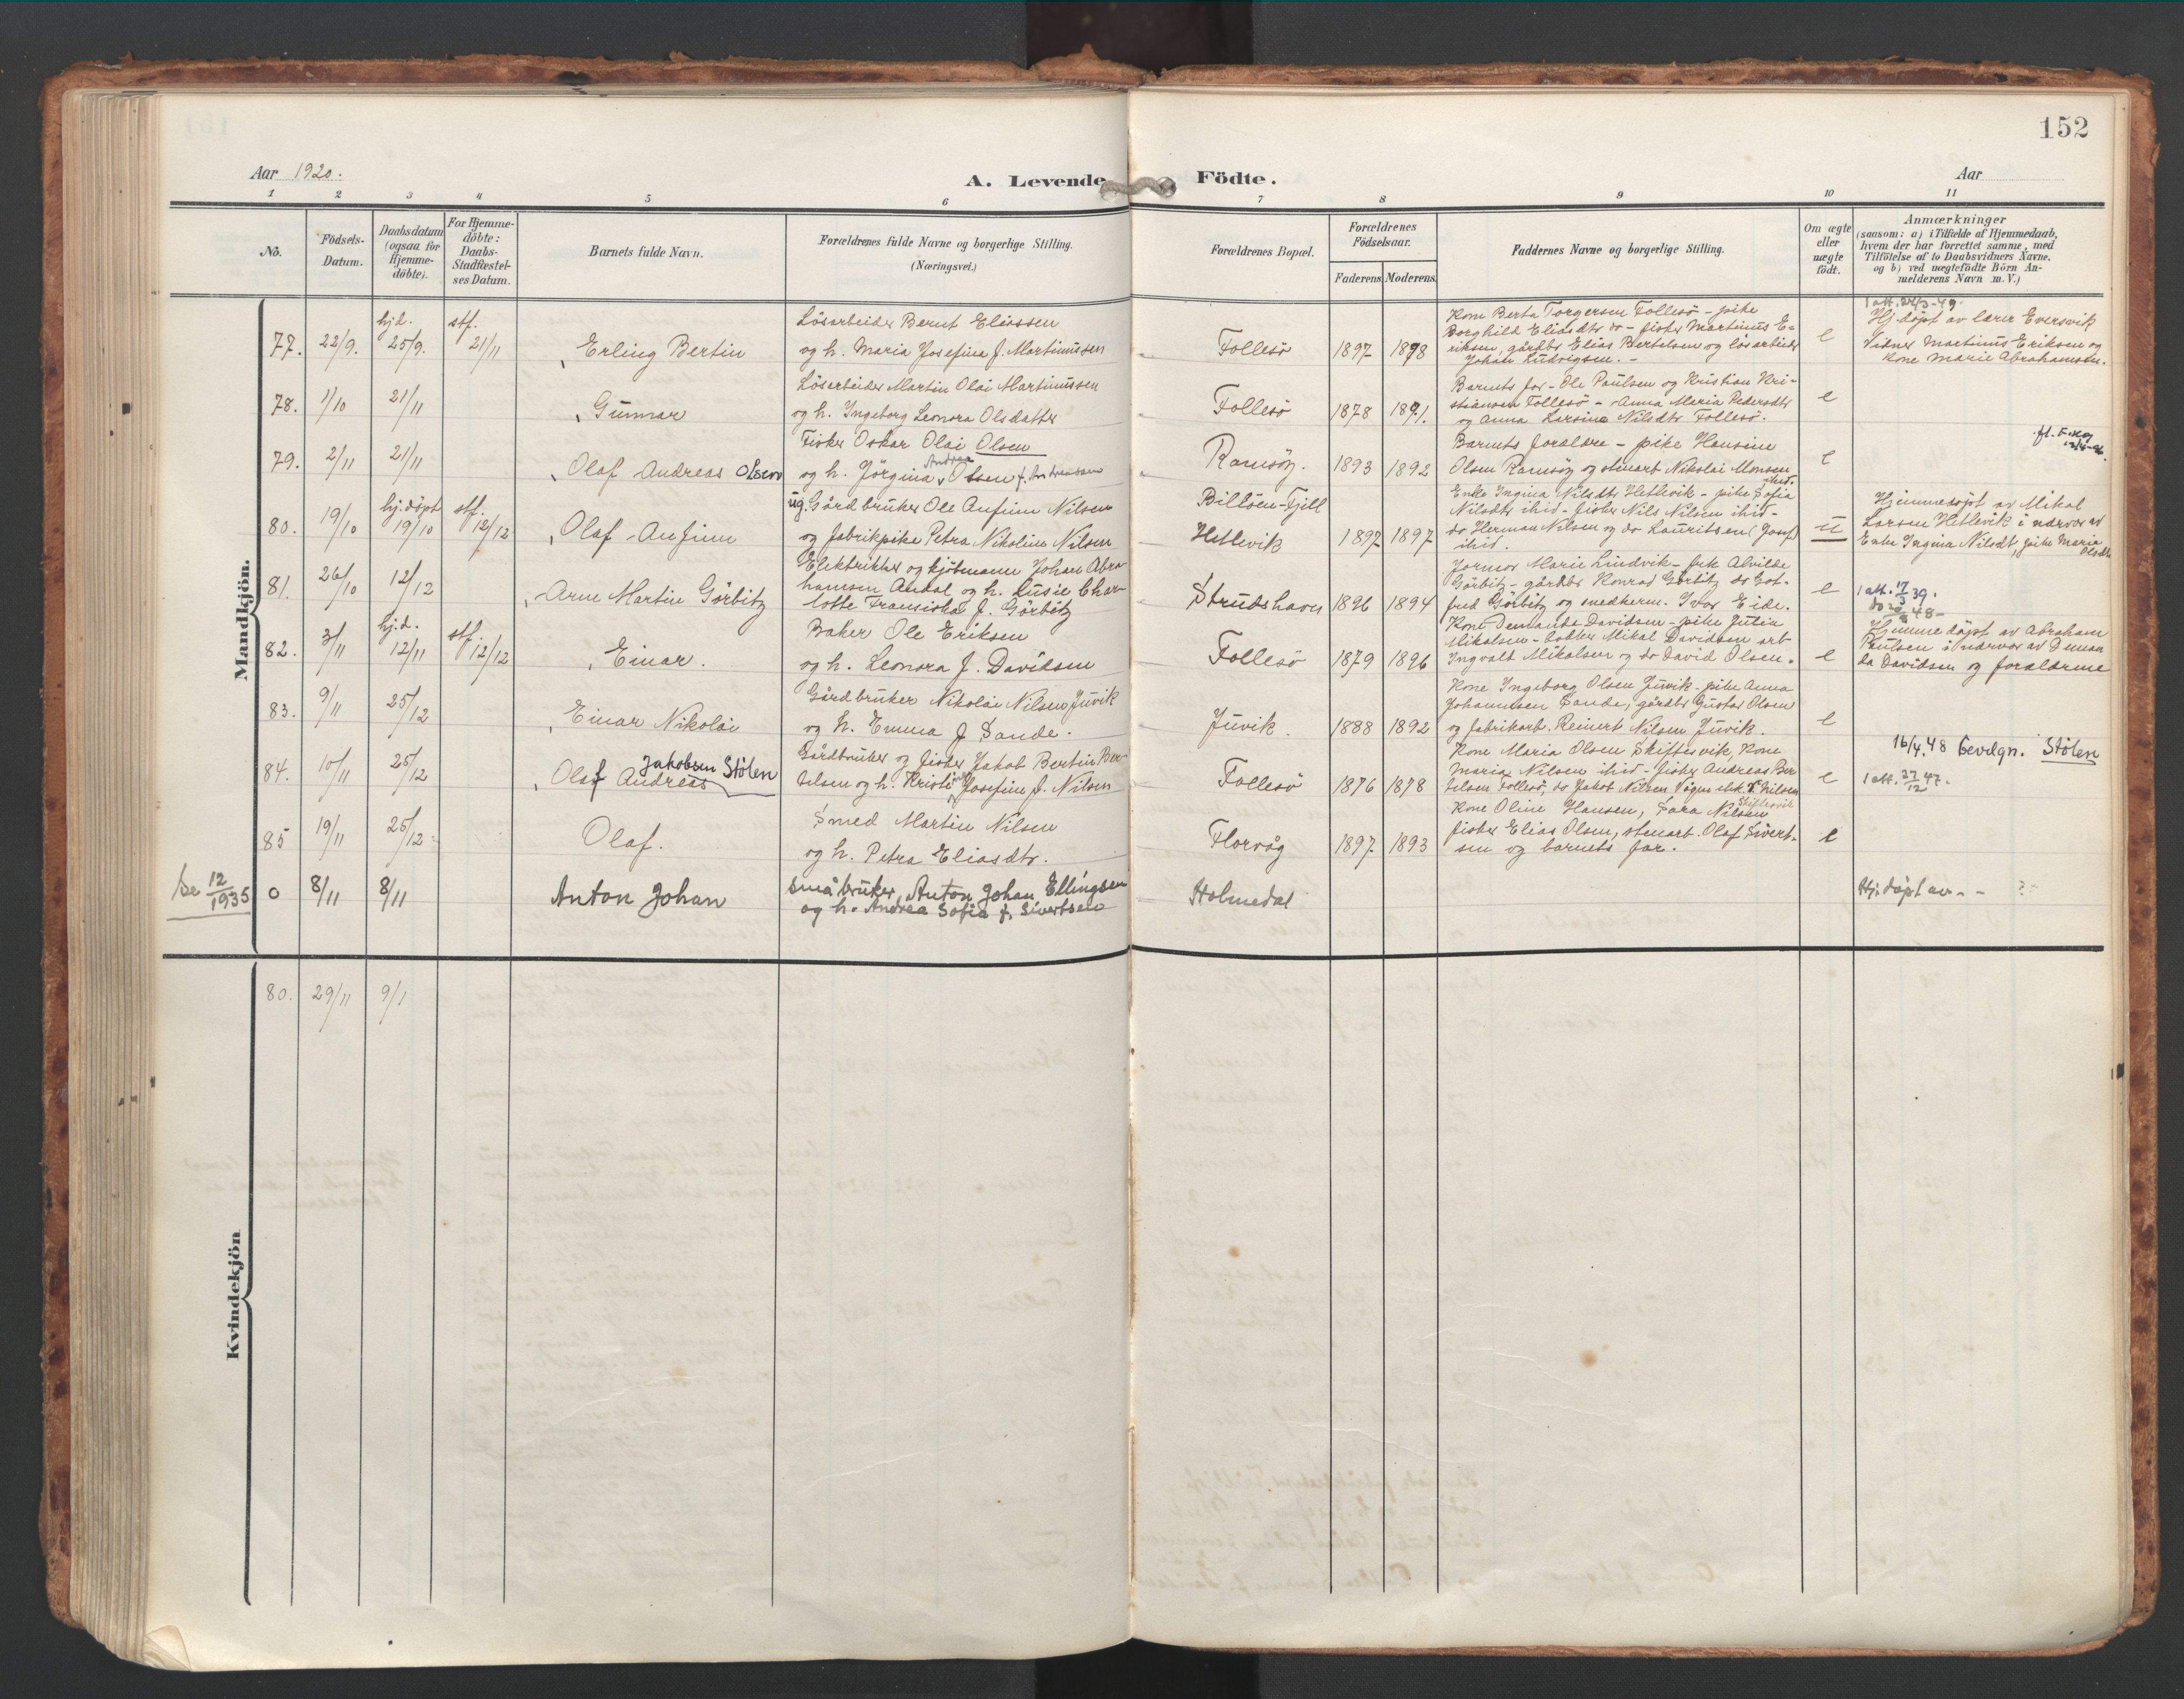 152
Aar 1920.
A. Levende Födte.
Aar
1 2 3 4 5 6 7 8 9 10 11
No.
Födsels-Datum.
Daabsdatum (ogsaa for Hjemme-döbte).
For Hjemme-döbte: Daabs-Stadfæstel-ses Datum.
Barnets fulde Navn.
Forældrenes fulde Navne og borgerlige Stilling.
(Næringsvei.)
Forældrenes Bopæl.
Forældrenes Födselsaar.
Faderens Moderens
Faddernes Navne og borgerlige Stilling.
Om ægte eller uægte födt.
Anmærkninger
(saasom: a) i Tilfælde af Hjemmedaab,
hvem der har forrettet samme, med
Tilföielse af to Daabsvidners Navne.
og b) ved uægtefödte Börn An-
melderens Navn m. V.)
Mandkjön.
77. 22/9. hjd. 25/9. stf. 21/11
Erling Bertin
Lösarbeider Bernt Eliassen
og h. Maria Josefina f. Martinussen
Follesö 1897 1898
Kone Berta Torgersen Follesö - pike
Borghild Eliasdtr do - fisker Martinus E-
riksen, gårdbr Elias Bertelsen og lösarbeider
Johan Ludvigsen. -
e
1 att. 24/3-49.
Hj.döpt av lærer Eversvik
Vidner Martinus Eriksen og
Kone Marie Abrahamsen.
78. 1/10 21/11
Gunnar
Lösarbeider Martin Olai Martinussen
og h. Ingeborg Leonora Olsdatter
Follesö 1878 1891.
Barnets far - Ole Paulsen og Kristian Kri-
stiansen Follesö - Anna Maria Pedersdtr
og Anna Larsine Nilsdtr Follesö.
e
79. 2/11 21/11
Olaf Andreas Olsen
Fisker Oskar Olai Olsen
og h. Jörgina Andrea Olsen f. Andreassen
Ramsöy. 1893 1892
Barnets forældre - pike Hansine
Olsen Ramsöy og stenarb Nikolai Monsen
ibid.
e
80. 19/10 hj.döpt 19/10 stf. 12/12
Olaf Anfinn
ug. Gårdbruker Ole Anfinn Nilsen
og fabrikpike Petra Nikoline Nilsen
Billöen - Fjell
Hetlevik 1897 1897
Enke Ingina Nilsdtr Hetlevik - pike Sofia
Nilsdtr ibid - fisker Nils Nilsen ibid -
do Herman Nilsen og do Lauritsen (Josef)
ibid.
u
Hjemmedöpt av Mikal
Larsen Hetlevik i nærvær av
Enke Ingina Nilsdt, pike Maria
Olsdtr
81. 26/10 12/12
Arne Martin Görbitz
Elektriker og kjöbmann Johan Abra-
hamsen Andal og h. Lusie Char-
lotte Fransiska f. Görbitz
Strudshavn 1896 1894
Jormor Marie Lindvik - frk Alvilde
Görbitz - gårdbr Konrad Görbitz do Got-
fred Görbitz og snedkerm. Ivar Eide.
e
1 att. 17/3 39.
82. 3/11 hj.d. 12/11 stf. 12/12
Einar.
Baker Ole Eriksen
og h. Leonora f. Davidsen
Follesö 1879 1896
Kone Demanda Davidsen - pike Julia
Mikalsen - Mikal Davidsen arb
Ingvalt Mikalsen og do David Olsen.
e
Hjemmedöpt av Abraham
Paulsen i nærvær av Deman
da Davidsen og forældrene
83. 9/11 25/12
Einar Nikolai
Gårdbruker Nikolai Nilsen Juvik
og h. Emma f Sande.
Juvik. 1888 1892
Kone Ingeborg Olsen Juvik - pike Anna
Johannesen Sande, gårdbr Gustav Olsen
og fabrikarb. Reinert Nilsen Juvik.
e
84. 10/11 25/12
Olaf Andreas Jakobsen Stölen
Gårdbruker og fisker Jakob Bertin Ber-
telsen og h. Kristi Josefine f. Nilsen
Follesö 1876 1878
Kone Maria Olsen Skiftesvik, Kone
Maria Nilsen ibid - fisker Andreas Ber
telsen Follesö, do Jakob Nilsen
e
16/4.48 bevilgn. Stölen
1 att. 27/12 47.
85 19/11 25/12
Olaf.
Smed Martin Nilsen
og h. Petra Eliasdtr.
Florvåg 1897 1893
Kone Oline Hansen, Sara Nilsen
Skiftesvik
fisker Elias Olsen, stenarb. Olaf Sivert-
sen og barnets far.
e
Se 12/1935 0 8/11 8/11
Anton Johan
småbruker Anton Johan Ellingsen
og h. Andrea Sofia f. Sivertsen
Holmedal
Hj.döpt av - - ?
Kvindekjön
80. 29/11 9/1